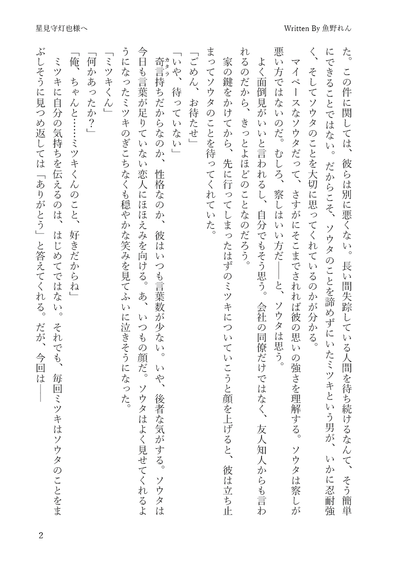 星見守灯也様へ
Written By 魚野れん
た。この件に関しては、彼らは別に悪くない。長い間失踪している人間を待ち続けるなんて、そう簡単
にできることではない。だからこそ、ソウタのことを諦めずにいたミツキという男が、いかに忍耐強
く、そしてソウタのことを大切に思ってくれているのかが分かる。
マイペースなソウタだって、さすがにそこまでされれば彼の思いの強さを理解する。ソウタは察しが
悪い方ではないのだ。むしろ、察しはいい方だ――と、ソウタは思う。
よく面倒見がいいと言われるし、自分でもそう思う。会社の同僚だけではなく、友人知人からも言わ
れるのだから、きっとよほどのことなのだろう。
家の鍵をかけてから、先に行ってしまったはずのミツキについていこうと顔を上げると、彼は立ち止
まってソウタのことを待ってくれていた。
「ごめん、お待たせ」
「いや、待っていない」
奇言持ちだからなのか、性格なのか、彼はいつも言葉数が少ない。いや、後者な気がする。ソウタは
今日も言葉が足りていない恋人にほほえみを向ける。あ、いつもの顔だ。ソウタはよく見せてくれるよ
うになったミツキのぎこちなくも穏やかな笑みを見てふいに泣きそうになった。
「ミツキくん」
「何かあったか?」
「俺、ちゃんと……ミツキくんのこと、好きだからね」
ミツキに自分の気持ちを伝えるのは、はじめてではない。それでも、毎回ミツキはソウタのことをま
ぶしそうに見つめ返しては「ありがとう」と答えてくれる。だが、今回は――
2